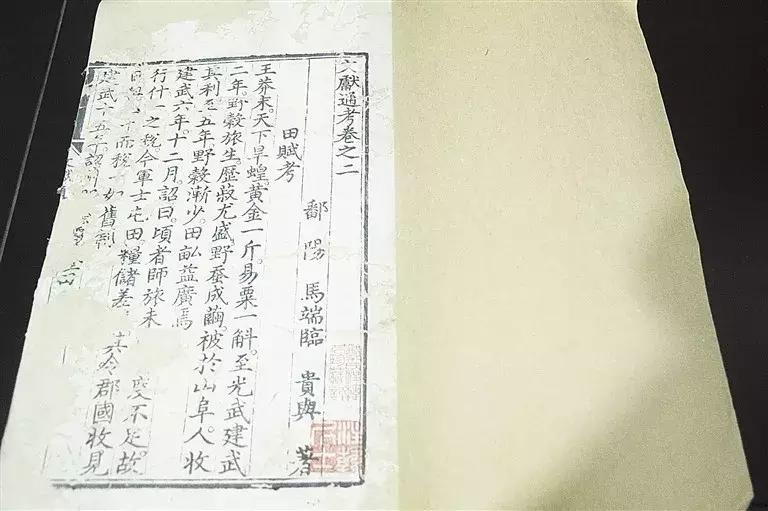 文獻通考卷之二
鄱陽 馬端臨 貴與 著
田賦考
王莽末。天下旱蝗。黃金一斤。易粟一斛。至光武建武
二年。野穀旅生。菽尤盛。野蚕成繭。被於山阜。人收
其利。至五年野穀漸少。田畝益廣焉
建武六年。十二月。詔曰。頃者師旅未度不足。故
行什一之稅。今軍士屯田。糧儲差其令郡國收見
十而稅如舊制
建武十五年詔